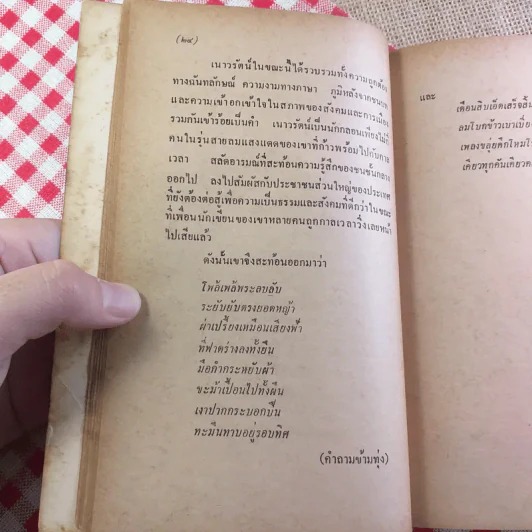 (๒๔)
เนาวรัตน์ในขณะนี้ได้รวบรวมทั้งความถูกต้อง
ทางฉันทลักษณ์ ความงามทางภาษา ภูมิหลังจากชนบท
และความเข้าอกเข้าใจในสภาพของสังคมและการเมือง
รวมกันเข้าร้อยเป็นคำ เนาวรัตน์เป็นนักกลอนเพียงไม่กี่
คนในรุ่นสายลมแสงแดดของเขาที่ก้าวพร้อมไปกับกาล
เวลา สลัดอารมณ์ที่สะท้อนความรู้สึกของชนชั้นกลาง
ออกไป ลงไปสัมผัสกับประชาชนส่วนใหญ่ของประเทศ
ที่ยังต้องต่อสู้เพื่อความเป็นธรรมและสังคมที่ดีกว่าในขณะ
ที่เพื่อนนักเขียนของเขาหลายคนถูกกาลเวลาวิ่งเลยหน้า
ไปเสียแล้ว
ดังนั้นเขาจึงสะท้อนออกมาว่า
โพล้เพล้พระอบลับ
ระยับยับตรงยอดหญ้า
ผ่าเปรี้ยงเหมือนเสียงฟ้า
ที่ฟาดร่างลงทั้งยืน
มือกำกระหยับผ้า
ขะม้าเปื้อนไปทั้งผืน
เงาปากกระบอกปืน
ทะมึนทาบอยู่รอบทิศ
(คำถามข้ามทุ่ง)
และ
เดือนสิบเอ็ดเสร็จสิ้น
ลมโบกข้าวเบาเบี่ยง
เพลงขลุ่ย
เคียวทุกคันเคียว